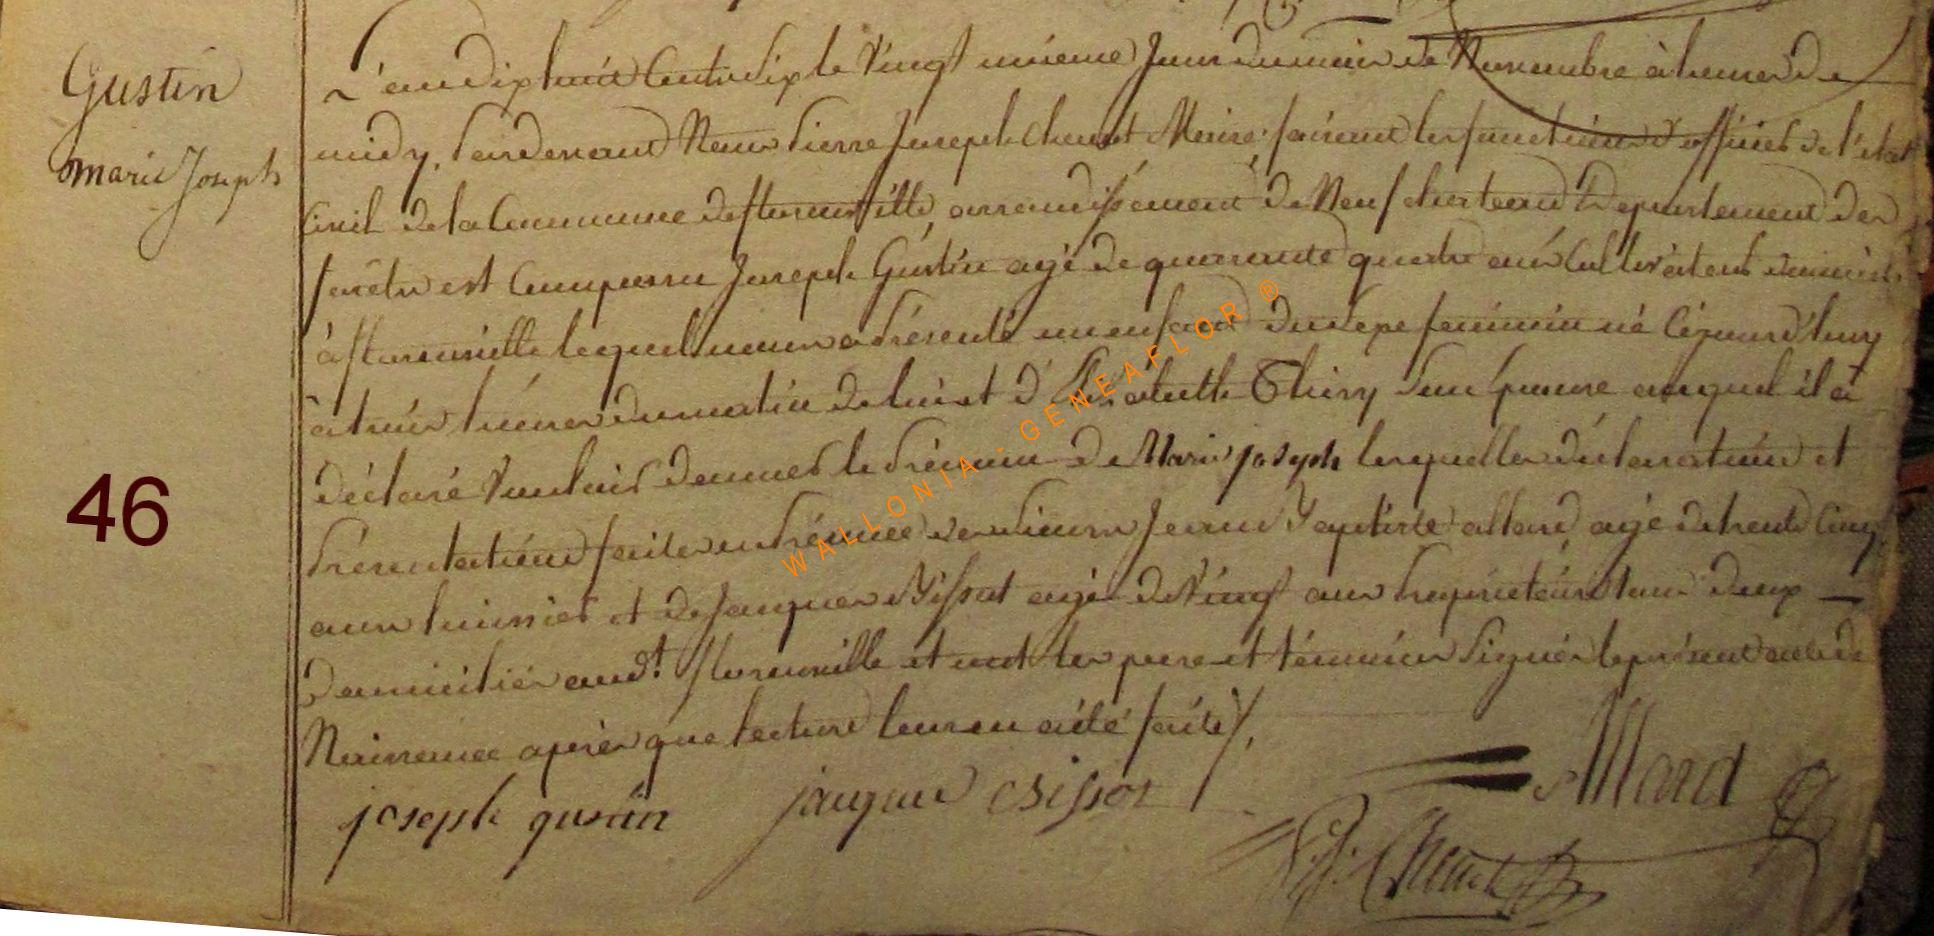 Gustin
marie Joseph
46
L'an dix huit Cent dix le Vingt unieme Jour du mois de Novembre à heures de
midy, Pardevant Nous Pierre Joseph Maire faisant les fonctions d'officier de l'etat
Civil de la Commune de florenville, arrondissement de Neufchateau Departement des
forêts est Comparu Joseph Gustin agé de quarante quatre ans Cultivateur domicilié
à florenville lequel nous a Présenté un enfant du sexe feminin né Cejourd'huy
à trois heures du matin de lui et d'Elisabeth Thiry Son épouse auquel il a
déclaré Vouloir donner le Prénom de Marie joseph lesquelles déclaration et
Présentation faites en Présence des Sieurs Jean Baptiste allard agé de trente Cinq
ans huissier et de Jacques Bissot agé de Vingt ans Propriétaire tous deux
domiciliés aud.t florenville et ont les pere et témoins Signés le présent acte de
Naissance après que lecture leur en a été faite /.
joseph gustin jacque Bissot Allard
P. J.
WALLONIA-GENEAFLOR ®